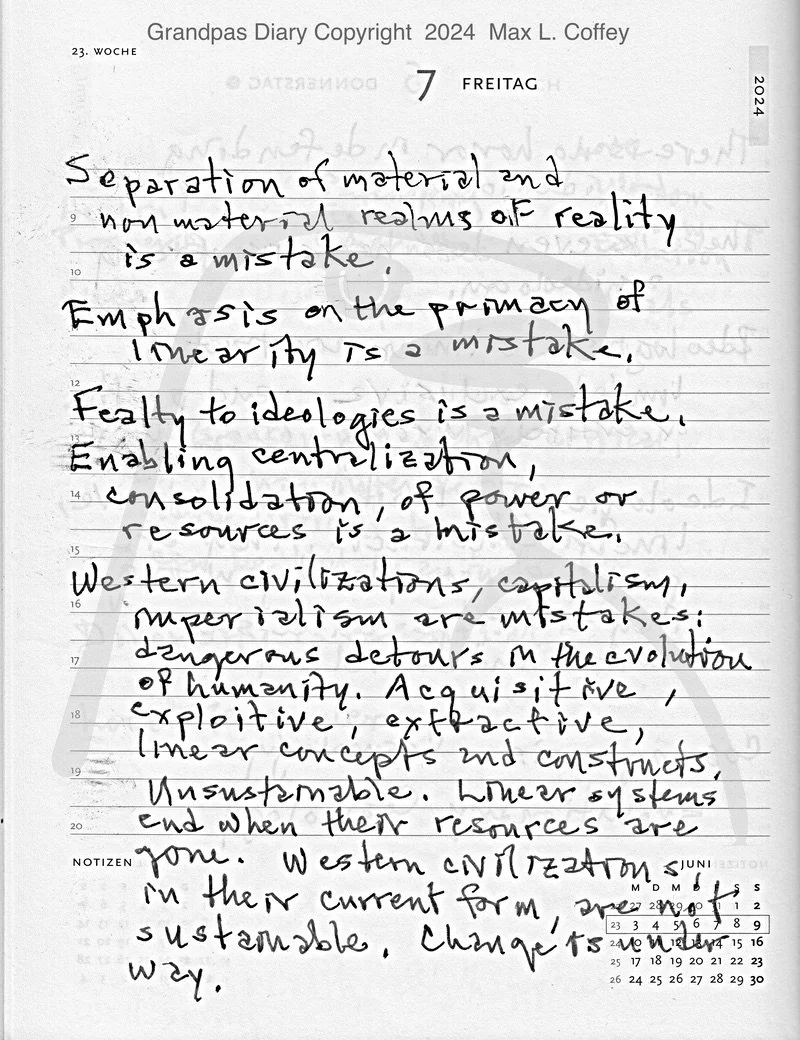 Grandpas Diary Copyright 2024 Max L. Coffey
23. WOCHE
7 FREITAG
2024
Separation of material and
9 non material realms of reality
is a mistake.
10
Emphasis on the primacy of
linearity is a mistake.
12
Fealty to ideologies is a mistake.
13
Enabling centralization,
14 consolidation, of power or
resources is a mistake.
15
Western civilizations, capitalism,
16 imperialism are mistakes:
dangerous detours in the evolution
17
of humanity. Acquisitive,
18 exploitive, extractive,
linear concepts and constructs.
19
Unsustainable. Linear systems
20 end when their resources are
gone. Western civilizations,
NOTIZEN
JUNI
in their current form, are not
sustainable. Change is under
way.
M D M D F S S
27 28 29 30 1 2
23 3 4 5 6 7 8 9
24 10 11 12 13 14 15 16
25 17 18 19 20 21 22 23
26 24 25 26 27 28 29 30